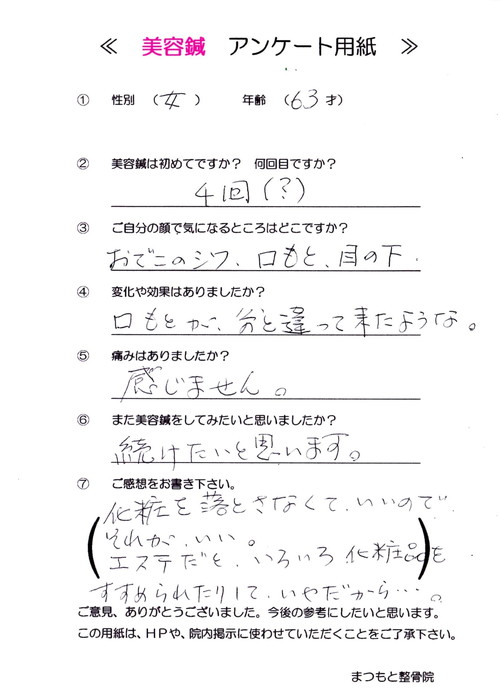 ≪ 美容鍼 アンケート用紙 ≫
① 性別 （女） 年齢 （63才）
② 美容鍼は初めてですか？ 何回目ですか？
4回（？）
③ ご自分の顔で気になるところはどこですか？
おでこのシワ、口もと、目の下.
④ 変化や効果はありましたか？
口もとが、分と違って来たような。
⑤ 痛みはありましたか？
感じません。
⑥ また美容鍼をしてみたいと思いましたか？
続けたいと思います。
⑦ ご感想をお書き下さい。
化粧を落とさなくて、いいので
それが、いい。
エステだと、いろいろ化粧品を
すすめられたりして、いやだから…。
ご意見、ありがとうございました。今後の参考にしたいと思います。
この用紙は、HPや、院内掲示に使わせていただくことをご了承下さい。
まつもと整骨院